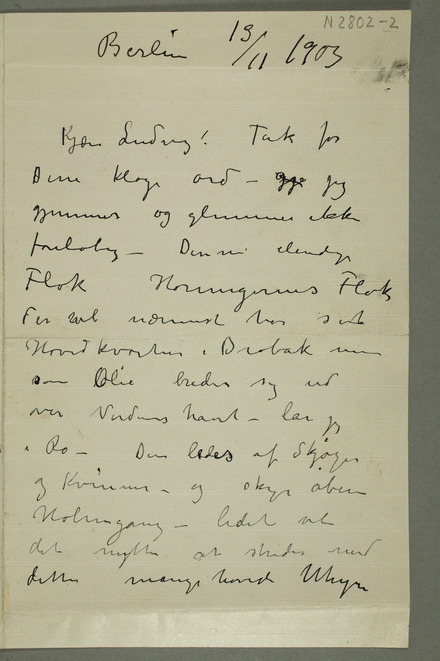 N 2802-2
Berlin 19/11 1903
Kjære Ludvig! Tak for
Dine kloge ord – jeg
gjemmer og glemmer ikke
foreløbig – Denne elendige
Flok Horungernes Flok
Før vel nærmest har sit
Hovedkvarter i Drøbak men
som Olie breder sig ud
over Verdens havet – lar jeg
i Ro – Den ledes af Skjøger
og Kvinner – og skyr åben
Holmgang – lidet vil
det nytte at strides med
dette mangehovede Uhyre